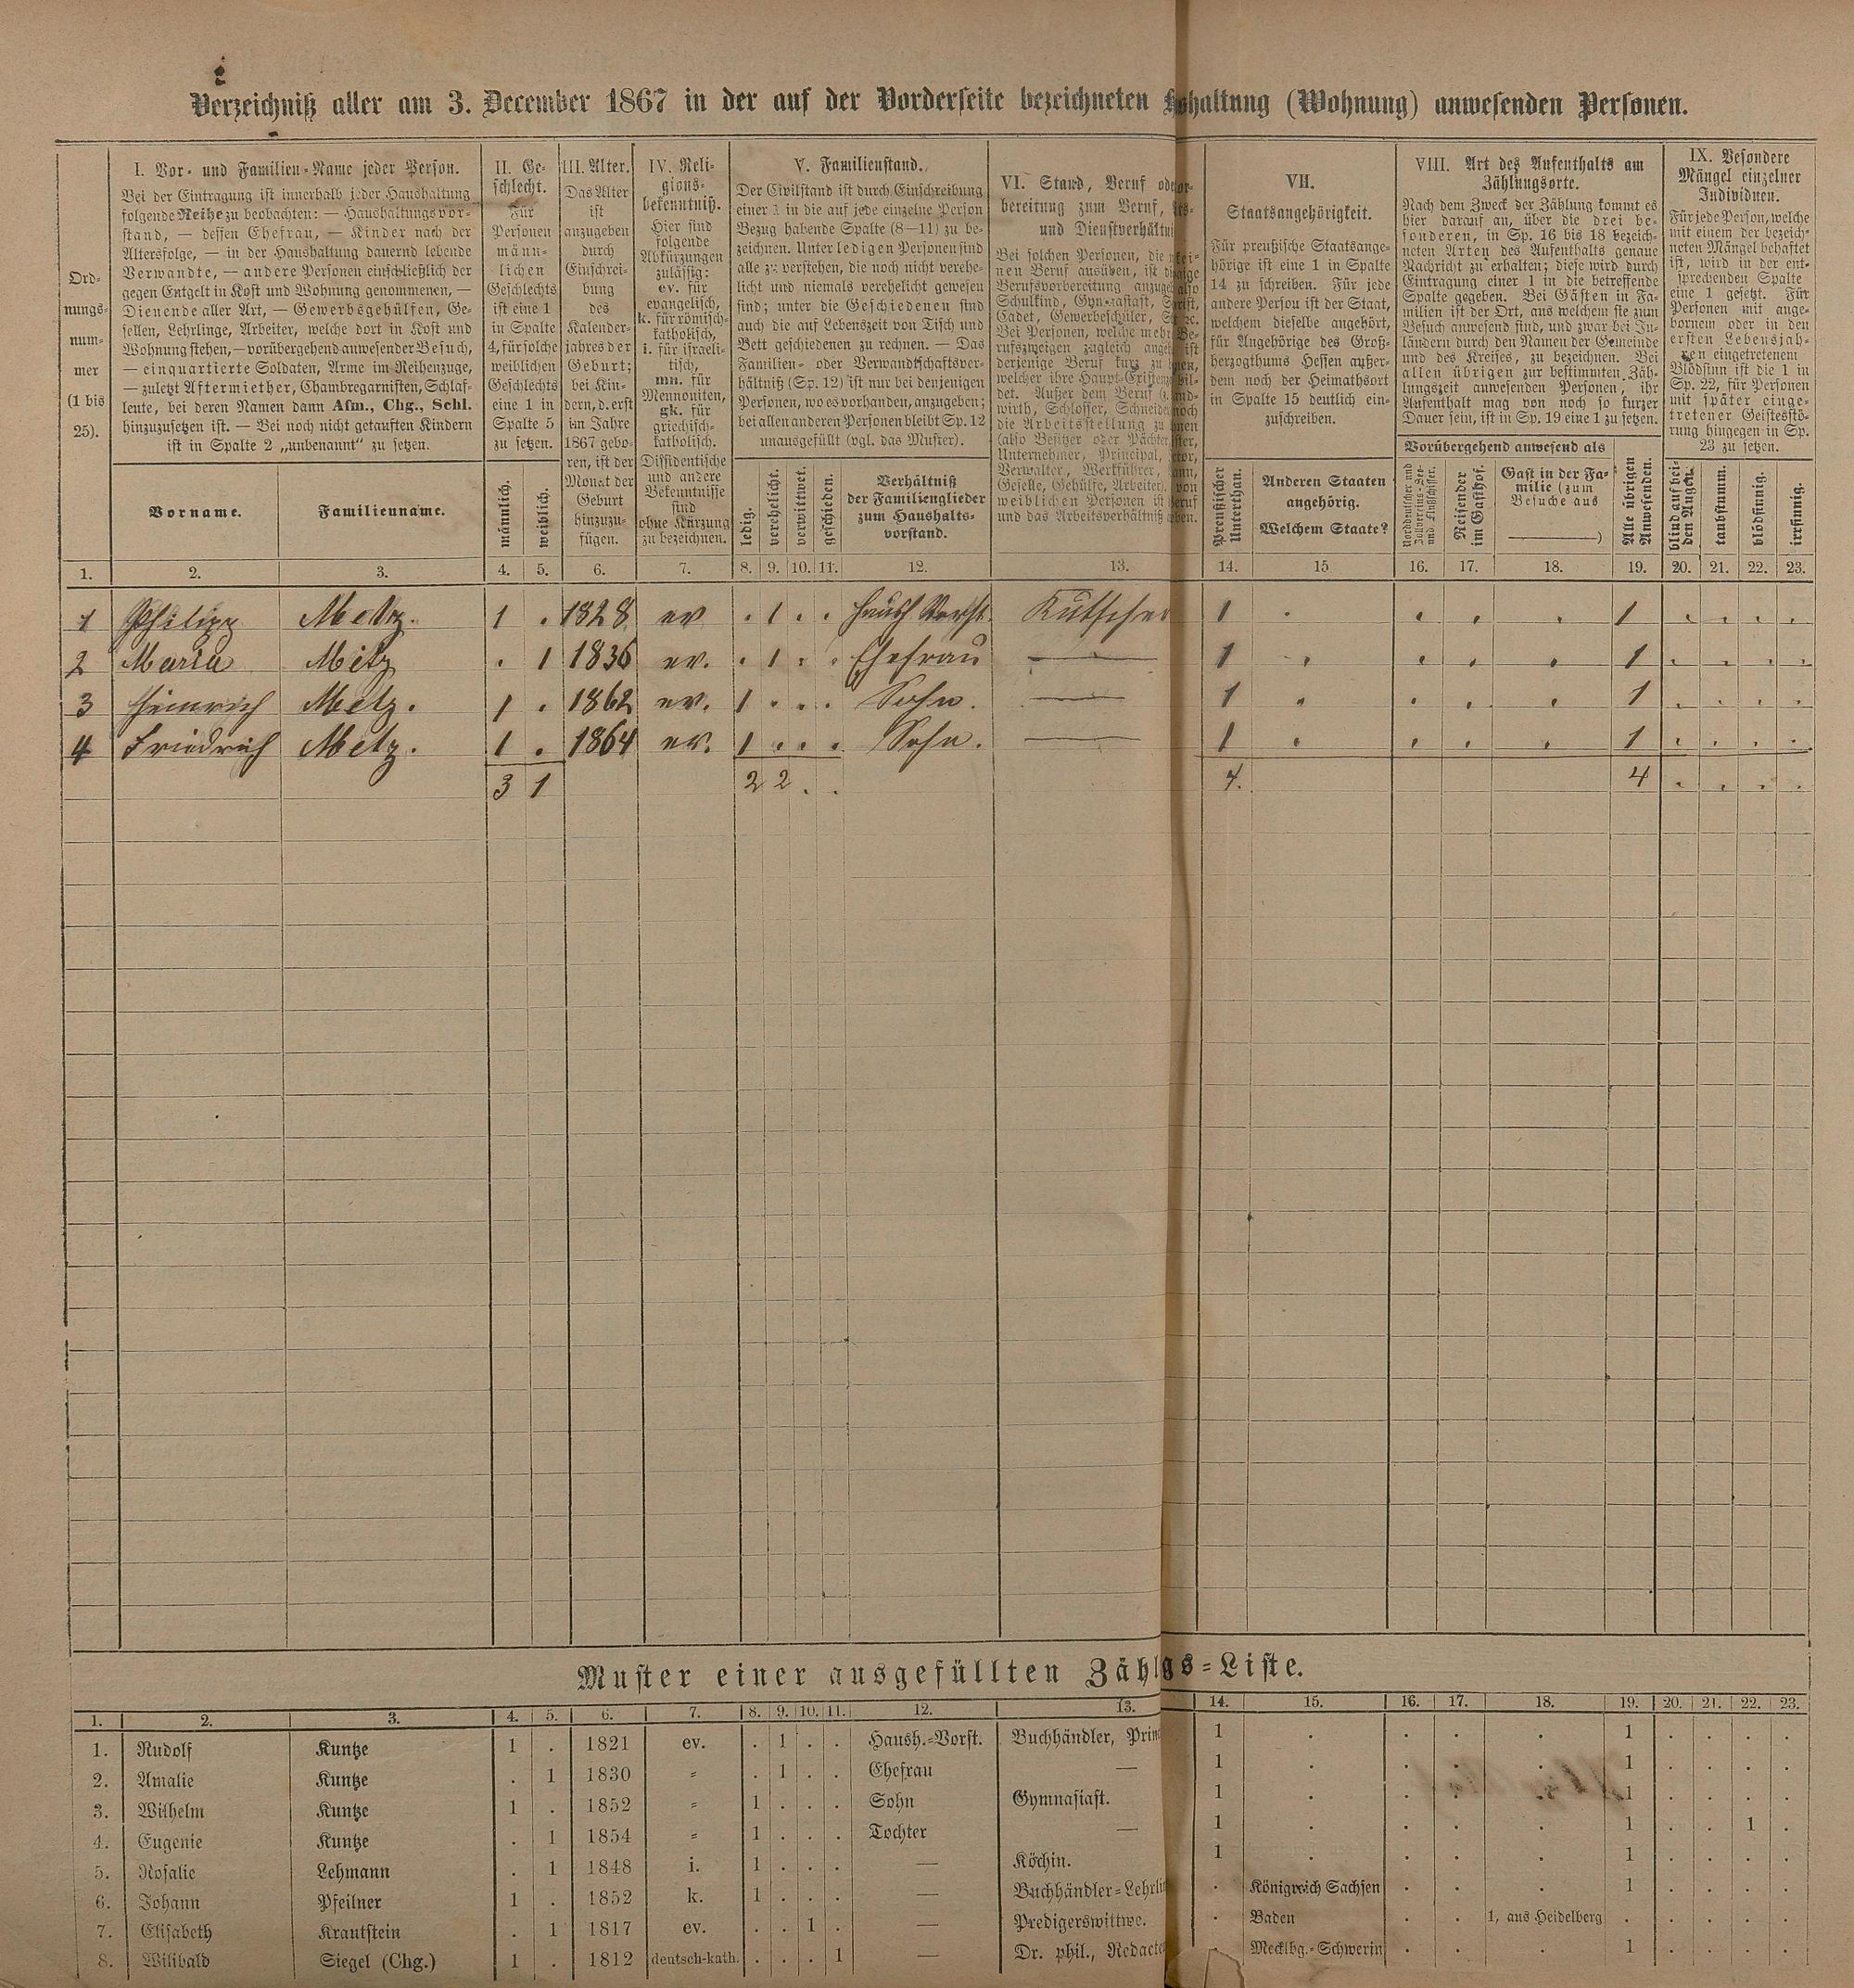 Verzeichniß aller am 3. December 1867 in der auf der Vorderseite bezeichneten haltung (Wohnung) anwesenden Personen.
Ord-
nungs-
num-
mer
(1 bis
25).
I. Vor- und Familien-Name jeder Person.
Bei der Eintragung ist innerhalb jeder Haushaltung
folgende Reihe zu beobachten: — Haushaltungsvor-
stand, — dessen Ehefrau, — Kinder nach der
Altersfolge, — in der Haushaltung dauernd lebende
Verwandte, — andere Personen einschließlich der
gegen Entgelt in Kost und Wohnung genommenen, —
Dienende aller Art, — Gewerbsgehülfen, Ge-
sellen, Lehrlinge, Arbeiter, welche dort in Kost und
Wohnung stehen, — vorübergehend anwesender Besuch,
— einquartierte Soldaten, Arme im Reihenzuge,
— zuletzt Aftermiether, Chambregarnisten, Schlaf-
leute, bei deren Namen dann Afm., Chg., Schl.
hinzuzusetzen ist. — Bei noch nicht getauften Kindern
ist in Spalte 2 „unbenannt“ zu setzen.
Vorname.
Familienname.
II. Ge-
schlecht.
Für
Personen
männ-
lichen
Geschlechts
ist eine 1
in Spalte
4, für solche
weiblichen
Geschlechts
eine 1 in
Spalte 5
zu setzen.
männlich.
weiblich.
III. Alter.
Das Alter
ist
anzugeben
durch
Einschrei-
bung
des
Kalender-
jahres der
Geburt;
bei Kin-
dern, d. erst
im Jahre
1867 gebo-
ren, ist der
Monat der
Geburt
hinzuzu-
fügen.
IV. Reli-
gions-
bekenntniß.
Hier sind
folgende
Abkürzungen
zulässig:
ev. für
evangelisch,
k. für römisch-
katholisch,
i. für israeli-
tisch,
mn. für
Mennoniten,
gk. für
griechisch-
katholisch.
Dissidentische
und andere
Bekenntnisse
sind
ohne Kürzung
zu bezeichnen.
V. Familienstand.
Der Civilstand ist durch Einschreibung
einer 1 in die auf jede einzelne Person
Bezug habende Spalte (8—11) zu be-
zeichnen. Unter ledigen Personen sind
alle zu verstehen, die noch nicht verehe-
licht und niemals verehelicht gewesen
sind; unter die Geschiedenen sind
auch die auf Lebenszeit von Tisch und
Bett geschiedenen zu rechnen. — Das
Familien- oder Verwandtschaftsver-
hältniß (Sp. 12) ist nur bei denjenigen
Personen, wo es vorhanden, anzugeben;
bei allen anderen Personen bleibt Sp. 12
unausgefüllt (vgl. das Muster).
ledig.
verehelicht.
verwittwet.
geschieden.
Verhältniß
der Familienglieder
zum Haushalts-
vorstand.
VI. Stand, Beruf
bereitung zum Beruf,
und
Bei solchen Personen, die
nen Beruf ausüben, ist
Berufsvorbereitung
Schulkind, Gymnasiast,
Cadet, Gewerbeschüler,
Bei Personen, welche
rufszweigen zugleich
derjenige Beruf kurz zu
welcher ihre
det. Außer dem Beruf
wirth, Schlosser,
die Arbeitsstellung zu
(also Besitzer oder Pächter,
Unternehmer, Principal,
Verwalter, Werkführer,
Geselle, Gehülfe, Arbeiter),
weiblichen Personen ist
und das Arbeitsverhältniß
VII.
Staatsangehörigkeit.
Für preußische Staatsange-
hörige ist eine 1 in Spalte
14 zu schreiben. Für jede
andere Person ist der Staat,
welchem dieselbe angehört,
für Angehörige des Groß-
herzogthums Hessen außer-
dem noch der Heimathsort
in Spalte 15 deutlich ein-
zuschreiben.
Preußischer
Unterthan.
Anderen Staaten
angehörig.
Welchem Staate?
VIII. Art des Aufenthalts am
Zählungsorte.
Nach dem Zweck der Zählung kommt es
hier darauf an, über die drei be-
sonderen, in Sp. 16 bis 18 bezeich-
neten Arten des Aufenthalts genaue
Nachricht zu erhalten; diese wird durch
Eintragung einer 1 in die betreffende
Spalte gegeben. Bei Gästen in Fa-
milien ist der Ort, aus welchem sie zum
Besuch anwesend sind, und zwar bei In-
ländern durch den Namen der Gemeinde
und des Kreises, zu bezeichnen. Bei
allen übrigen zur bestimmten Zäh-
lungszeit anwesenden Personen, ihr
Aufenthalt mag von noch so kurzer
Dauer sein, ist in Sp. 19 eine 1 zu setzen.
Vorübergehend anwesend als
Norddeutscher und
Zollvereins-See-
und Flußschiffer.
Reisender
im Gasthof.
Gast in der Fa-
milie (zum
Besuche aus
)
Alle übrigen
Anwesenden.
IX. Besondere
Mängel einzelner
Individuen.
Für jede Person, welche
mit einem der bezeich-
neten Mängel behaftet
ist, wird in der ent-
sprechenden Spalte
eine 1 gesetzt. Für
Personen mit ange-
bornem oder in den
ersten Lebensjah-
ren eingetretenem
Blödsinn ist die 1 in
Sp. 22, für Personen
mit später einge-
tretener Geistesstö-
rung hingegen in Sp.
23 zu setzen.
blind auf bei-
den Augen.
taubstumm.
blödsinnig.
irrsinnig.
1. 2. 3. 4. 5. 6. 7. 8. 9. 10. 11. 12. 13. 14. 15 16. 17. 18. 19. 20. 21. 22. 23.
1 Philipp Metz. 1 . 1828 ev . 1 . . Haush Vorst. Kutscher 1 . . . . 1 . . . .
2 Maria Metz . 1 1836 ev. . 1 . . Ehefrau — 1 . . . . 1 . . . .
3 Heinrich Metz. 1 . 1862 ev. 1 . . . Sohn. — 1 . . . . 1 . . . .
4 Friedrich Metz. 1 . 1864 ev. 1 . . . Sohn. — 1 . . . . 1 . . . .
3 1 2 2 . . 4. 4 . . . .
Muster einer ausgefüllten Liste.
1. 2. 3. 4. 5. 6. 7. 8. 9. 10. 11. 12. 13. 14. 15. 16. 17. 18. 19. 20. 21. 22. 23.
1. Rudolf Kuntze 1 . 1821 ev. . 1 . . Haush.-Vorst. Buchhändler, 1 . . . . 1 . . . .
2. Amalie Kuntze . 1 1830 = . 1 . . Ehefrau — 1 . . . . 1 . . . .
3. Wilhelm Kuntze 1 . 1852 = 1 . . . Sohn Gymnasiast. 1 . . . . 1 . . . .
4. Eugenie Kuntze . 1 1854 = 1 . . . Tochter — 1 . . . . 1 . . 1 .
5. Rosalie Lehmann . 1 1848 i. 1 . . . — Köchin. 1 . . . . 1 . . . .
6. Johann Pfeilner 1 . 1852 k. 1 . . . — . Königreich Sachsen . . . 1 . . . .
7. Elisabeth Krautstein . 1 1817 ev. . . 1 . — Predigerswittwe. . Baden . . 1, aus Heidelberg . . . . .
8. Wilibald Siegel (Chg.) 1 . 1812 deutsch-kath. . . . 1 — Dr. phil., . Mecklbg.-Schwerin . . . 1 . . . .